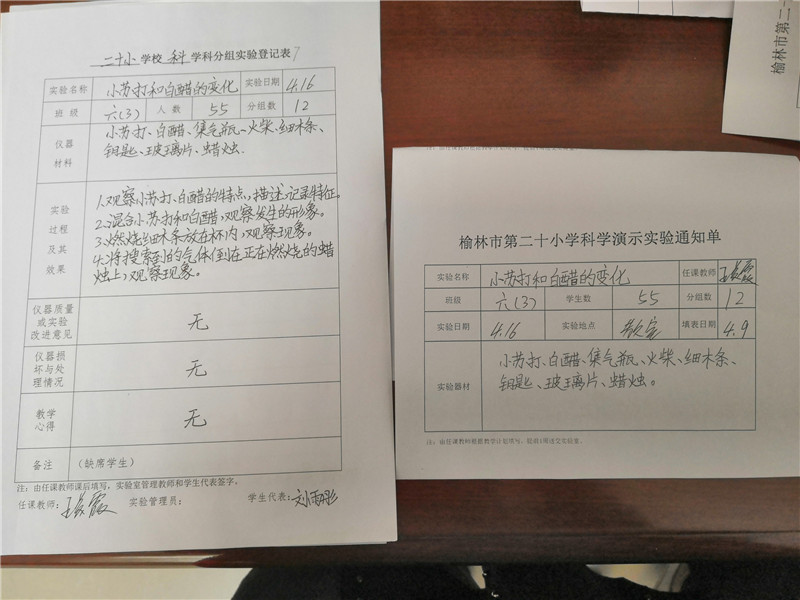 二十小学校 科 学科分组实验登记表
实验名称 小苏打和白醋的变化 实验日期 4.16
班 级 六(3) 人 数 55 分组数 12
仪器材料
小苏打、白醋、集气瓶、火柴、细木条、
钥匙、玻璃片、蜡烛.
实验过程及其效果
1.观察小苏打、白醋的特点,描述记录特征。
2.混合小苏打和白醋,观察发生的形象。
3.燃烧细木条放在杯内,观察现象。
4.将搜索到的气体倒在正在燃烧的蜡
烛上,观察现象。
仪器质量或实验改进意见 无
仪器损坏与处理情况 无
教学心得 无
备注 (缺席学生)
注:由任课教师课后填写,实验室管理教师和学生代表签字。
任课教师: 实验管理员: 学生代表:
榆林市第二十小学科学演示实验通知单
实验名称 小苏打和白醋的变化 任课教师
班级 六(3) 学生数 55 分组数 12
实验日期 4.16 实验地点 教室 填表日期 4.9
实验器材
小苏打、白醋、集气瓶、火柴、细木条、
钥匙、玻璃片、蜡烛。
注:由任课教师根据教学计划填写,提前1周送交实验室。
榆林市第二十